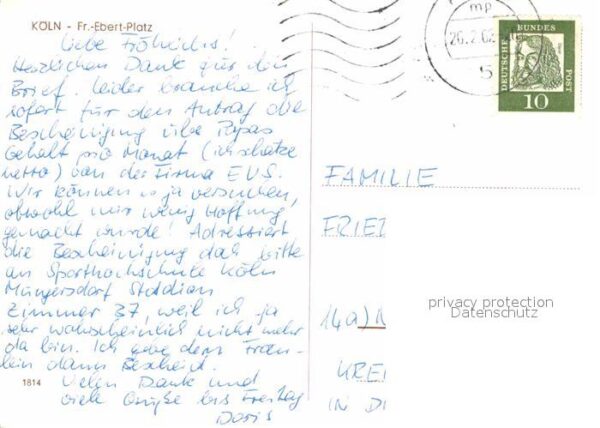 KÖLN - Fr.-Ebert-Platz
Liebe Fröhlichs!
Herzlichen Dank für den
Brief. Leider brauche ich
sofort für den Antrag die
Bescheinigung über Papas
Gehalt pro Monat (ich schätze
netto) von der Firma EVS.
Wir können es ja versuchen,
obwohl mir wenig Hoffnung
gemacht wurde! Adressiert
die Bescheinigung doch bitte
an Sporthochschule Köln
Müngersdorf Stadion
Zimmer 37, weil ich ja
sehr wahrscheinlich nicht mehr
da bin. Ich gebe dem Fräu-
lein dann Bescheid.
Vielen Dank und
viele Grüße bis Freitag
Doris
1814
mp
26.2.62
5
DEUTSCHE BUNDESPOST
10
FAMILIE
FRIE
14a)
privacy protection
Datenschutz
KREI
IN D